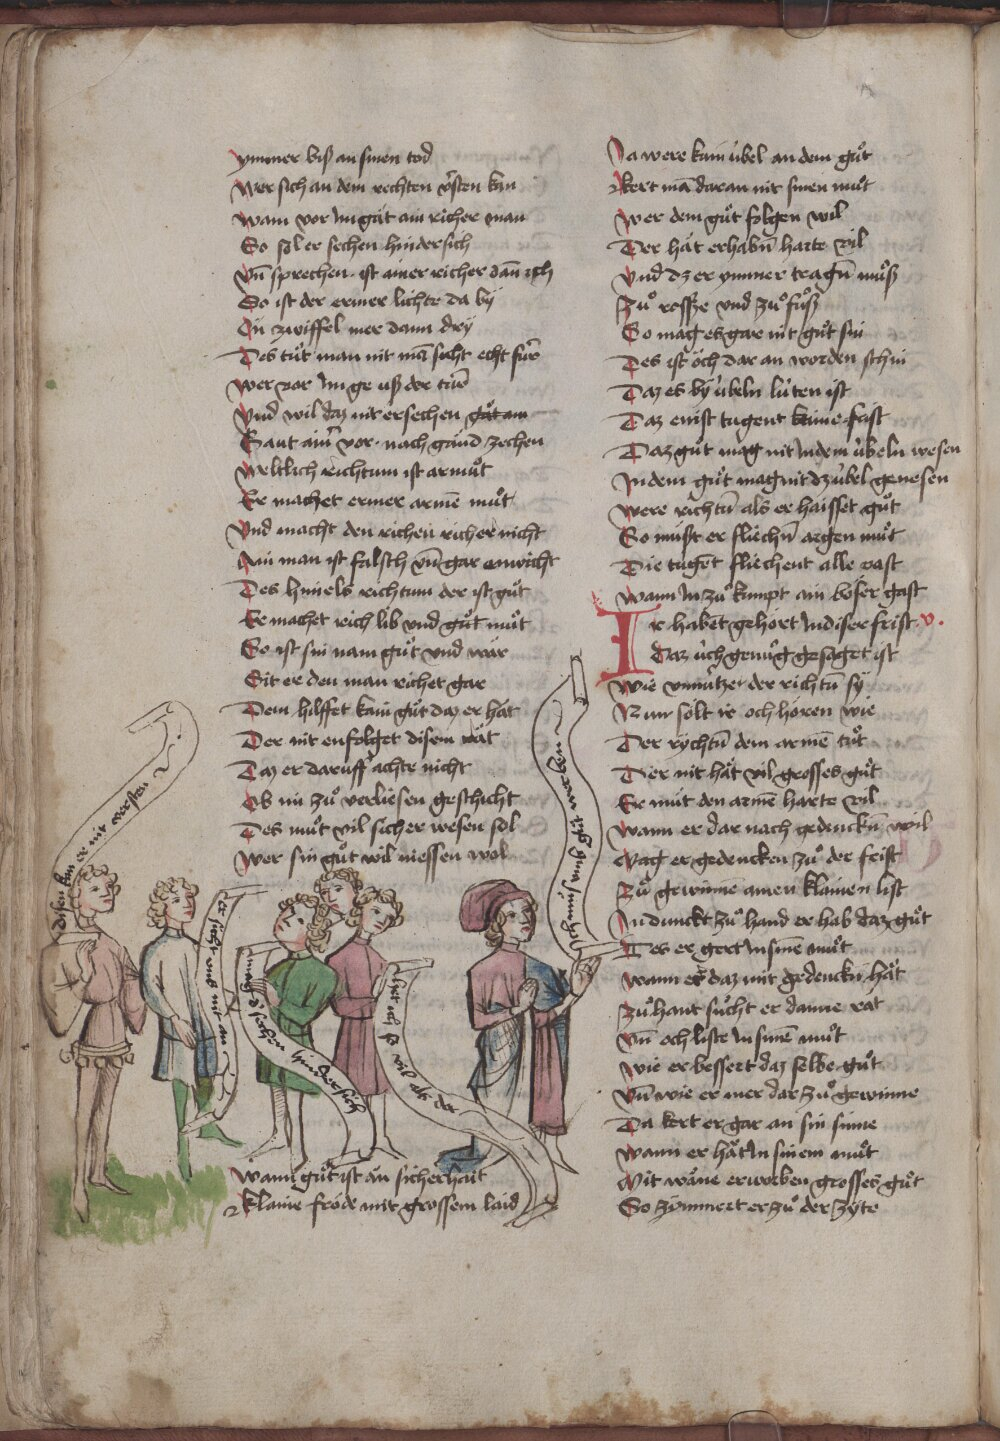 ymmer biß an sinen tod
Wer sich an dem rechten v͛sten kan
Wann vor Im gät ain richer man
So sol er sechen hindersich
Vn̄ sprechen ist ainer richer dān ich
So ist der ermer lichte da by
On zwiffel mer dann dry
Des tůt man nit mā sicht echt für
Wer vor Im ge uß der türe
Vnd wil daz nit ersechen
Gaut ain͛ vor nach gaund zechen
Weltlich richtum ist armůt
Er machet ermer armē můt
Vnd macht den richen richer nicht
Ain man ist falsch vn̄ gar enwicht
Des himels richtum der ist gůt
Er machet rich lib vnd gůt můt
So ist sin nam gůt vnd wär
Sit er den man richet gar
Dem hilffet kain gůt daz er hät
Der nit enfolget disem rät
Daz er daruff achte nicht
Ob im zů verliesen geschicht
Des můt vil sicher wesen sol
Wer sin gůt wil niessen wol
disen kan er nit versten
der sicht vns nit an
mag d͛ sechen hindersich
hie nach ist vil als der
Wann gůt ist än sicherhait
Klaine fröde mit grossem laid
Ja were kain übel an dem gůt
Kert mā daran nit sinen můt
Wer dem gůt folgen wil
Der hät erhabn̄ harte vil
Vnd dz er ymmer tragn̄ můß
Zů rosse vnd zů fůß
So mag es gar nit gůt sin
Des ist öch dar an worden schin
Daz es by übeln lüten ist
Daz enist tugent kaine frist
Daz gůt mag nit In dem übeln wesen
In dem gůt mag nit dz übel genesen
Were richtū als er haisset gůt
So můst er fliechn̄ argen můt
Die tugēt fliechent alle vast
Wann In zů kumpt ain böser gast
Ir habet gehört In diser frist v.
Daz üch genůg gesaget ist
Wie vnnützer der richtū sy
Nun sölt ir och hören wie
Der rychtū dem armē tůt
Der nit hät vil grosses gůt
Er můt den armē harte vil
Wann er dar nach gedenckn̄ wil
Mag er gedencken zů der frist
Zů gewinnē ainen klainen list
In dunckt zů hand er hab daz gůt
Des er gert In sine můt
Wann er daz mit gedenckn̄ hät
Zů hant sůcht er danne rat
Vn̄ och liste In sinē můt
Wie er bessert daz selbe gůt
Vn̄ wie er mer dar zů gewinne
Da kert er gar an sin sinne
Wann er hät In sinem můt
Mit wäne erworben grosses gůt
So zimmert er zů der zyte